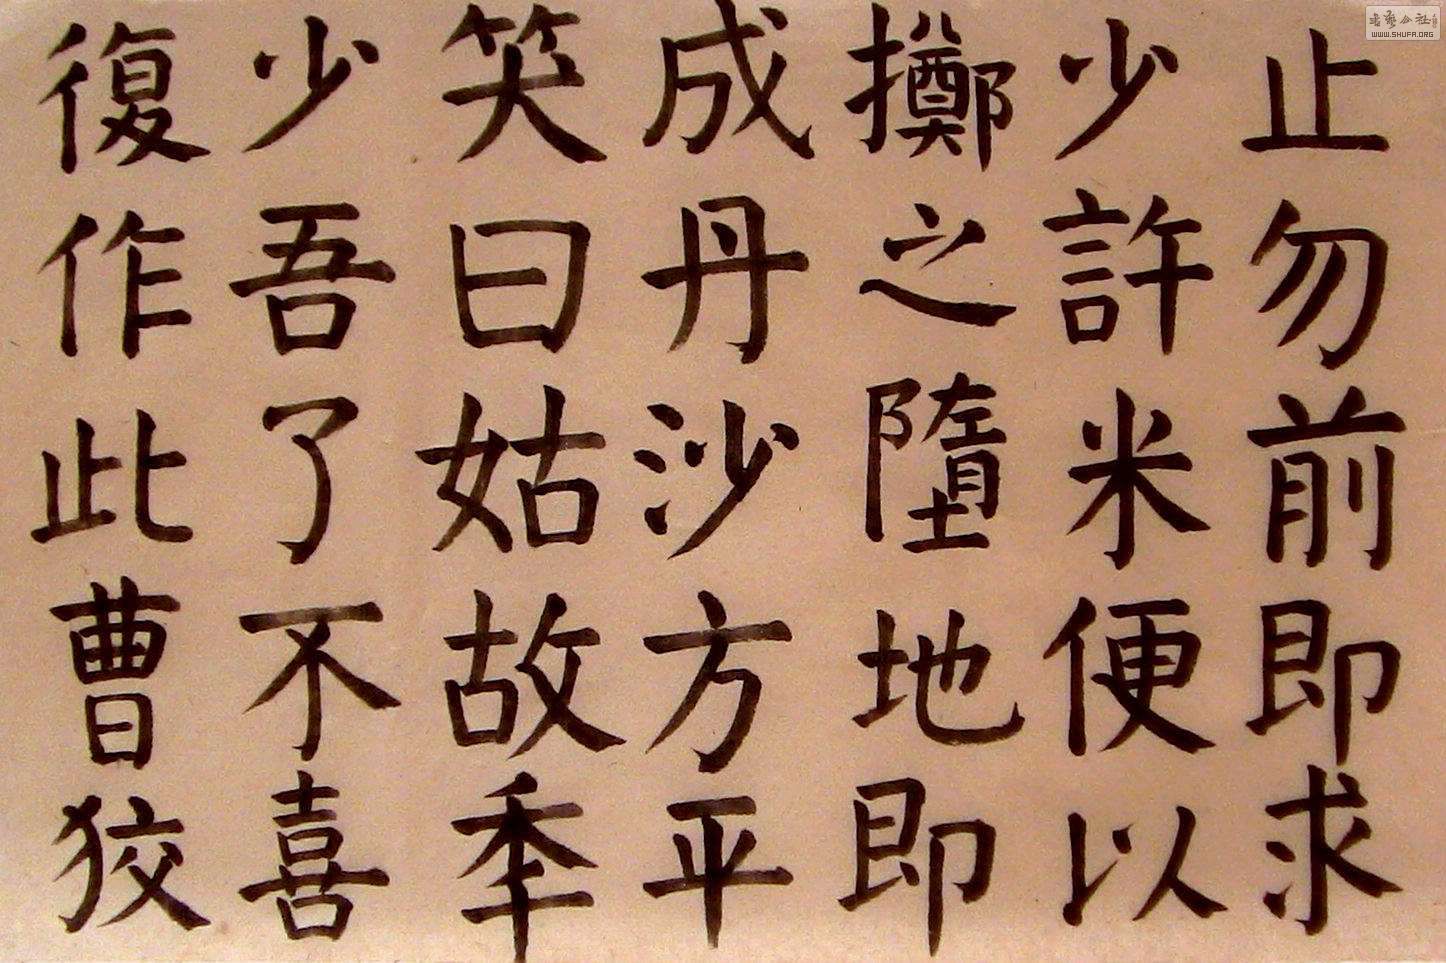 止勿前即求
少許米便以
擲之墮地即
成丹沙方平
笑曰姑故秊
少吾了不喜
復作此曹狡
書藝公社
WWW.SHUFA.ORG